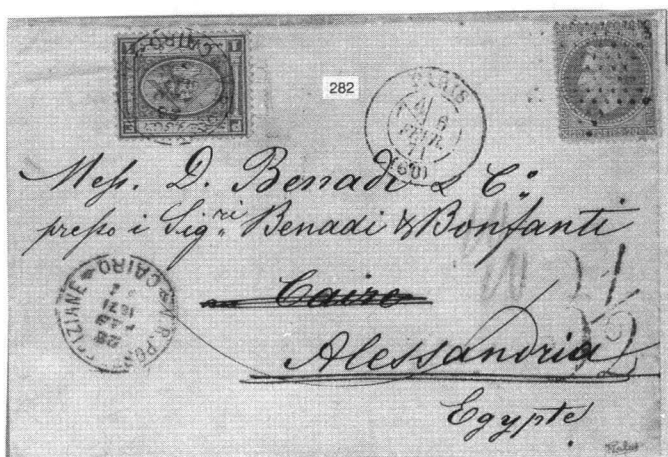 CAIRO
282
PARIS
6
FEVR.
71
(60)
Mess. D. Benadi & Co.
presso i Sigri. Benadi & Bonfanti
Cairo
Alessandria
Egypte
V.R. POSTE EGIZIANE
CAIRO
28
FEB
1871